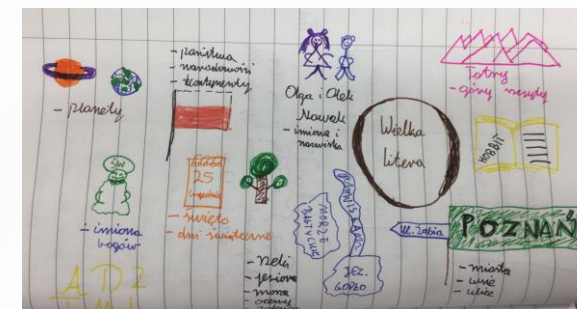 - planety
- państwa
- narodowości
- kontynenty
Olga i Olek
Nowak
- imiona i
nazwiska
Tatry
- góry
Wielka
litera
HOBBIT
- imiona
bogów
25
- święto
- dni świąteczne
MORZE
BAŁTYCKIE
JEZ.
GOPŁO
ul. Żabia
POZNAŃ
- miasta
- wsie
- ulice
- rzeki
- jeziora
- morza
- oceany
A D Z